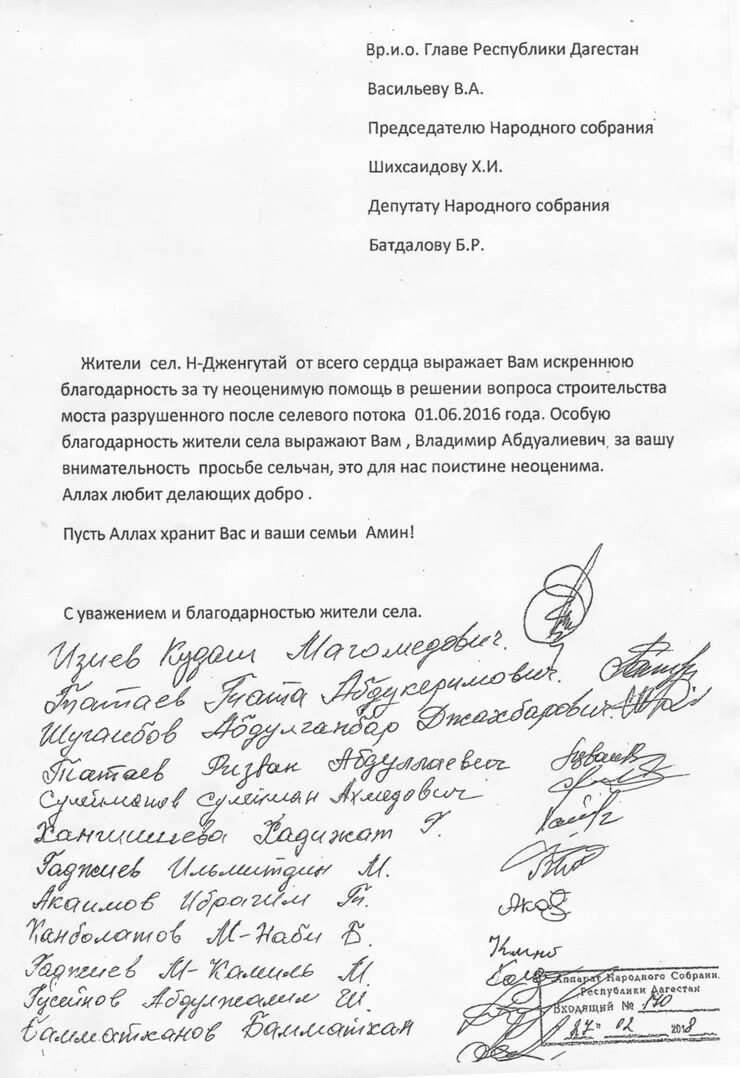 Вр.и.о. Главе Республики Дагестан
Васильеву В.А.
Председателю Народного собрания
Шихсаидову Х.И.
Депутату Народного собрания
Батдалову Б.Р.
Жители сел. Н-Дженгутай от всего сердца выражает Вам искреннюю
благодарность за ту неоценимую помощь в решении вопроса строительства
моста разрушенного после селевого потока 01.06.2016 года. Особую
благодарность жители села выражают Вам , Владимир Абдуалиевич, за вашу
внимательность просьбе сельчан, это для нас поистине неоценима.
Аллах любит делающих добро .
Пусть Аллах хранит Вас и ваши семьи Амин!
С уважением и благодарностью жители села.
Изиев Кудаш Магомедович.
Татаев Тата Абдукеримович.
Шугаибов Абдулганбар Джахбарович.
Татаев Ризван Абдуллаевич
Сулейманов Сулейман Ахмедович
Хангишиева Хадижат Г.
Гаджиев Ильмитдин М.
Акаимов Ибрагим Г.
Канболатов М-Наби Б.
Гаджиев М-Камиль М.
Гусейнов Абдулжалил Ш.
Бамматханов Бамматхан
Аппарат Народного Собрани
Республики Дагестан
Входящий № 170
27 02 2018